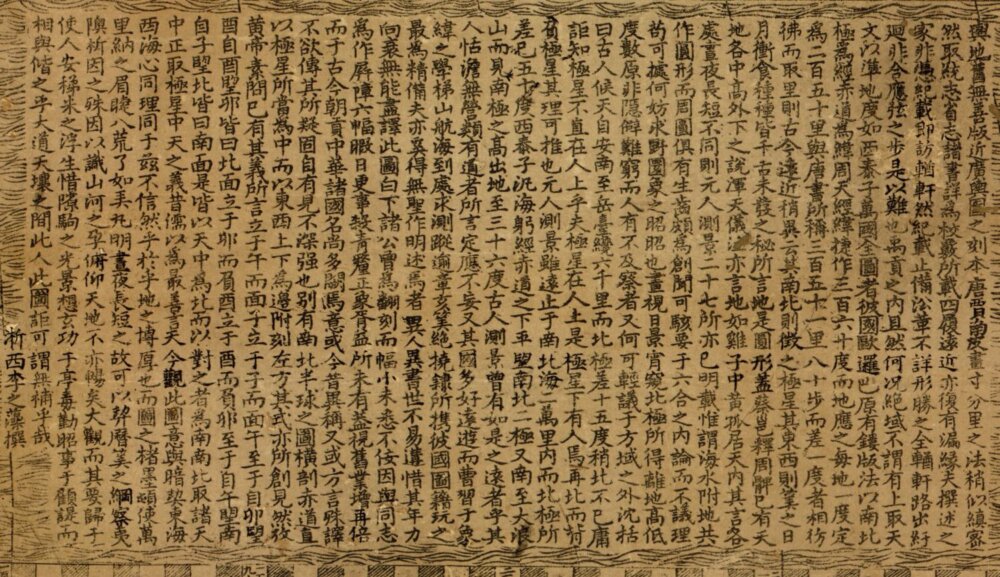 輿地舊無善版近廣輿圖之刻本唐賈南皮畫寸分里之法稍似縝密
然取統志省志諸書詳為校覈所載四履遠近亦復有漏緣夫撰述之
家非憑紀載即訪輶軒然紀載止備沿革不詳形勝之全輶軒路出紆
迴非合應弦之步是以難也禹貢之內且然何況絕域不謂有上取天
文以準地度如西泰子萬國全圖者彼國歐邏巴原有鏤版法以南北
極為經赤道為緯周天經緯捷作三百六十度而地應之每地一度定
為二百五十里與唐書所稱三百五十一里八十步而差一度者相彷
彿而取里則古今遠近稍異云其南北則徵之極星其東西則筭之日
月衝食種種皆千古未發之秘所言地是圓形蓋蔡邕釋周髀已有天
地各中高外下之說渾天儀注亦言地如雞子中黃孤居天內其言各
處晝夜長短不同則元人測景二十七所亦已明載惟謂海水附地共
作圓形而周圓俱有生齒頗為創聞可駭要于六合之內論而不議理
苟可據何妨求野圜象之昭昭也晝視日景宵窺北極所得離地高低
度數原非隱僻難窮而人有不及察者又何可輕議于方域之外沈括
曰古人候天自安南至岳臺纔六千里而北極差十五度稍北不已庸
詎知極星不直在人上乎夫極星在人上是極星下有人焉再北而背
負極星其理可推也元人測景雖遠止于南北海二萬里內而北極所
差已五十度西泰子汎海躬經赤道之下平望南北二極又南至大浪
山而見南極之高出地至三十六度古人測景曾有如是之遠者乎其
人恬澹無營類有道者所言定應不妄又其國多好遠遊而曹習于象
緯之學梯山航海到處求測蹤逾章亥筭絕撓隸所攜彼國圖籍玩之
最為精備夫亦奚得無聖作明述焉者異人異書世不易遘惜其年力
向衰無能盡譯此圖白下諸公曾為翻刻而幅小未悉不佞因與同志
為作屏障六幅暇日更事殺青釐正象胥益所未有蓋視舊業增再倍
而于古今朝貢中華諸國名尚多闕焉意或今昔異稱又或方言殊譯
不欲傳其所疑固自有見不深強也別有南北半球之圖橫剖赤道直
以極星所當為中而以東西上下為邊附刻左方其式亦所創見然攷
黃帝素問已有其義所言立于午而面子立于子而面午至于自卯望
酉自酉望卯皆曰北面立于卯而負酉立于酉而負卯至于自午望南
自子望北皆曰南面是皆以天中為北而以對之者為南南北取諸天
中正取極星中天之義昔儒以為最善言天今觀此圖意與暗契東海
西海心同理同于茲不信然乎於乎地之博厚也而圖之楮墨頓使萬
里納之眉睫八荒了如弄丸明晝夜長短之故可以挈曆筭之綱察夷
隩析因之殊因以識山河之孕俯仰天地不亦暢矣大觀而其要歸于
使人安稊米之浮生惜隙駒之光景想玄功于亭毒勤昭事于顧諟而
相與偕之乎大道天壤之間此人此圖詎可謂無補乎哉
浙西李之藻撰